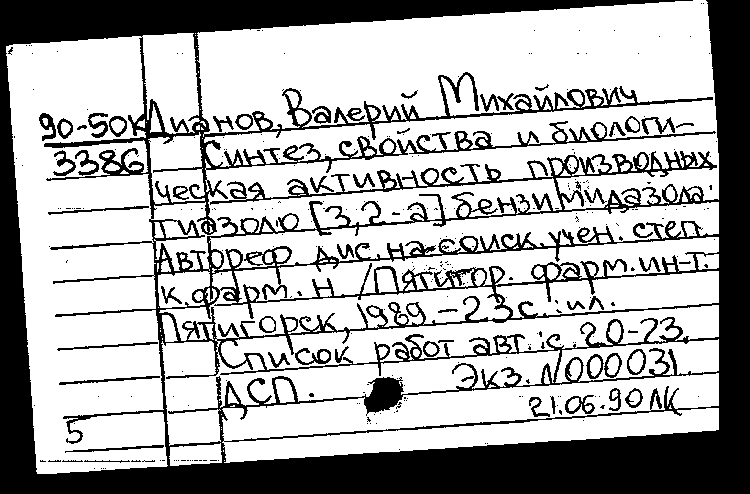 90-50к Дианов, Валерий Михайлович
3386 Синтез, свойства и биологи-
ческая активность производных
тиазоло [3,2-а] бензимидазола:
Автореф. дис. на соиск. учен. степ.
к. фарм. н /Пятигор. фарм. ин-т.
Пятигорск, 1989. - 23 с. : ил.
Список работ авт.: с. 20-23.
ДСП. Экз. N000031.
21.06.90 ЛК
5